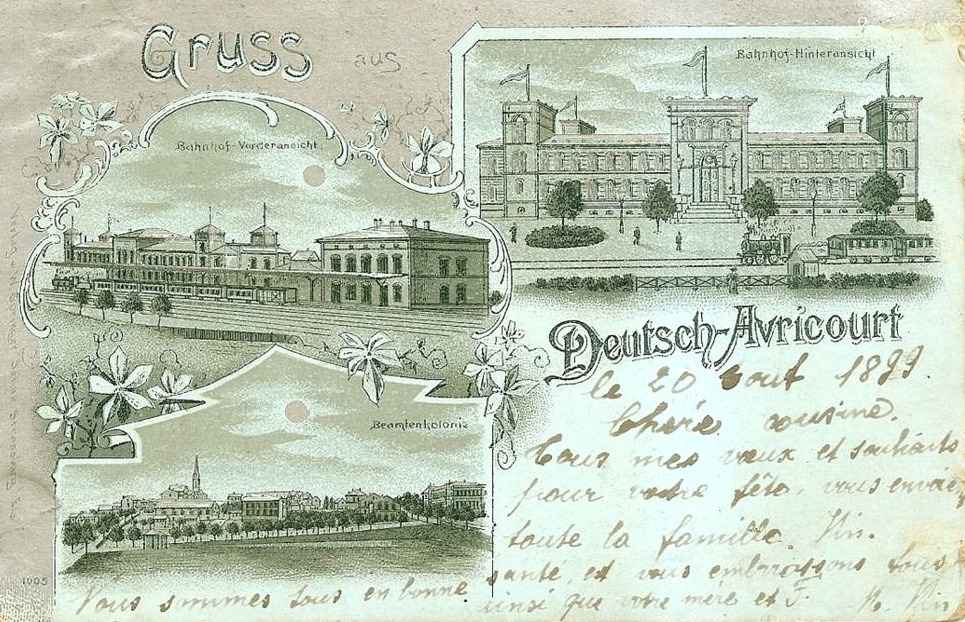 Gruss aus
Bahnhof-Vorderansicht
Bahnhof-Hinteransicht
Deutsch-Avricourt
Beamtenkolonie
le 20 aout 1899.
Chère cousine.
Tous mes vœux et souhaits
pour votre fête. vous envoie
toute la famille.
Nous sommes tous en bonne
santé, et vous embrassons tous
ainsi que votre mère et F.
1005